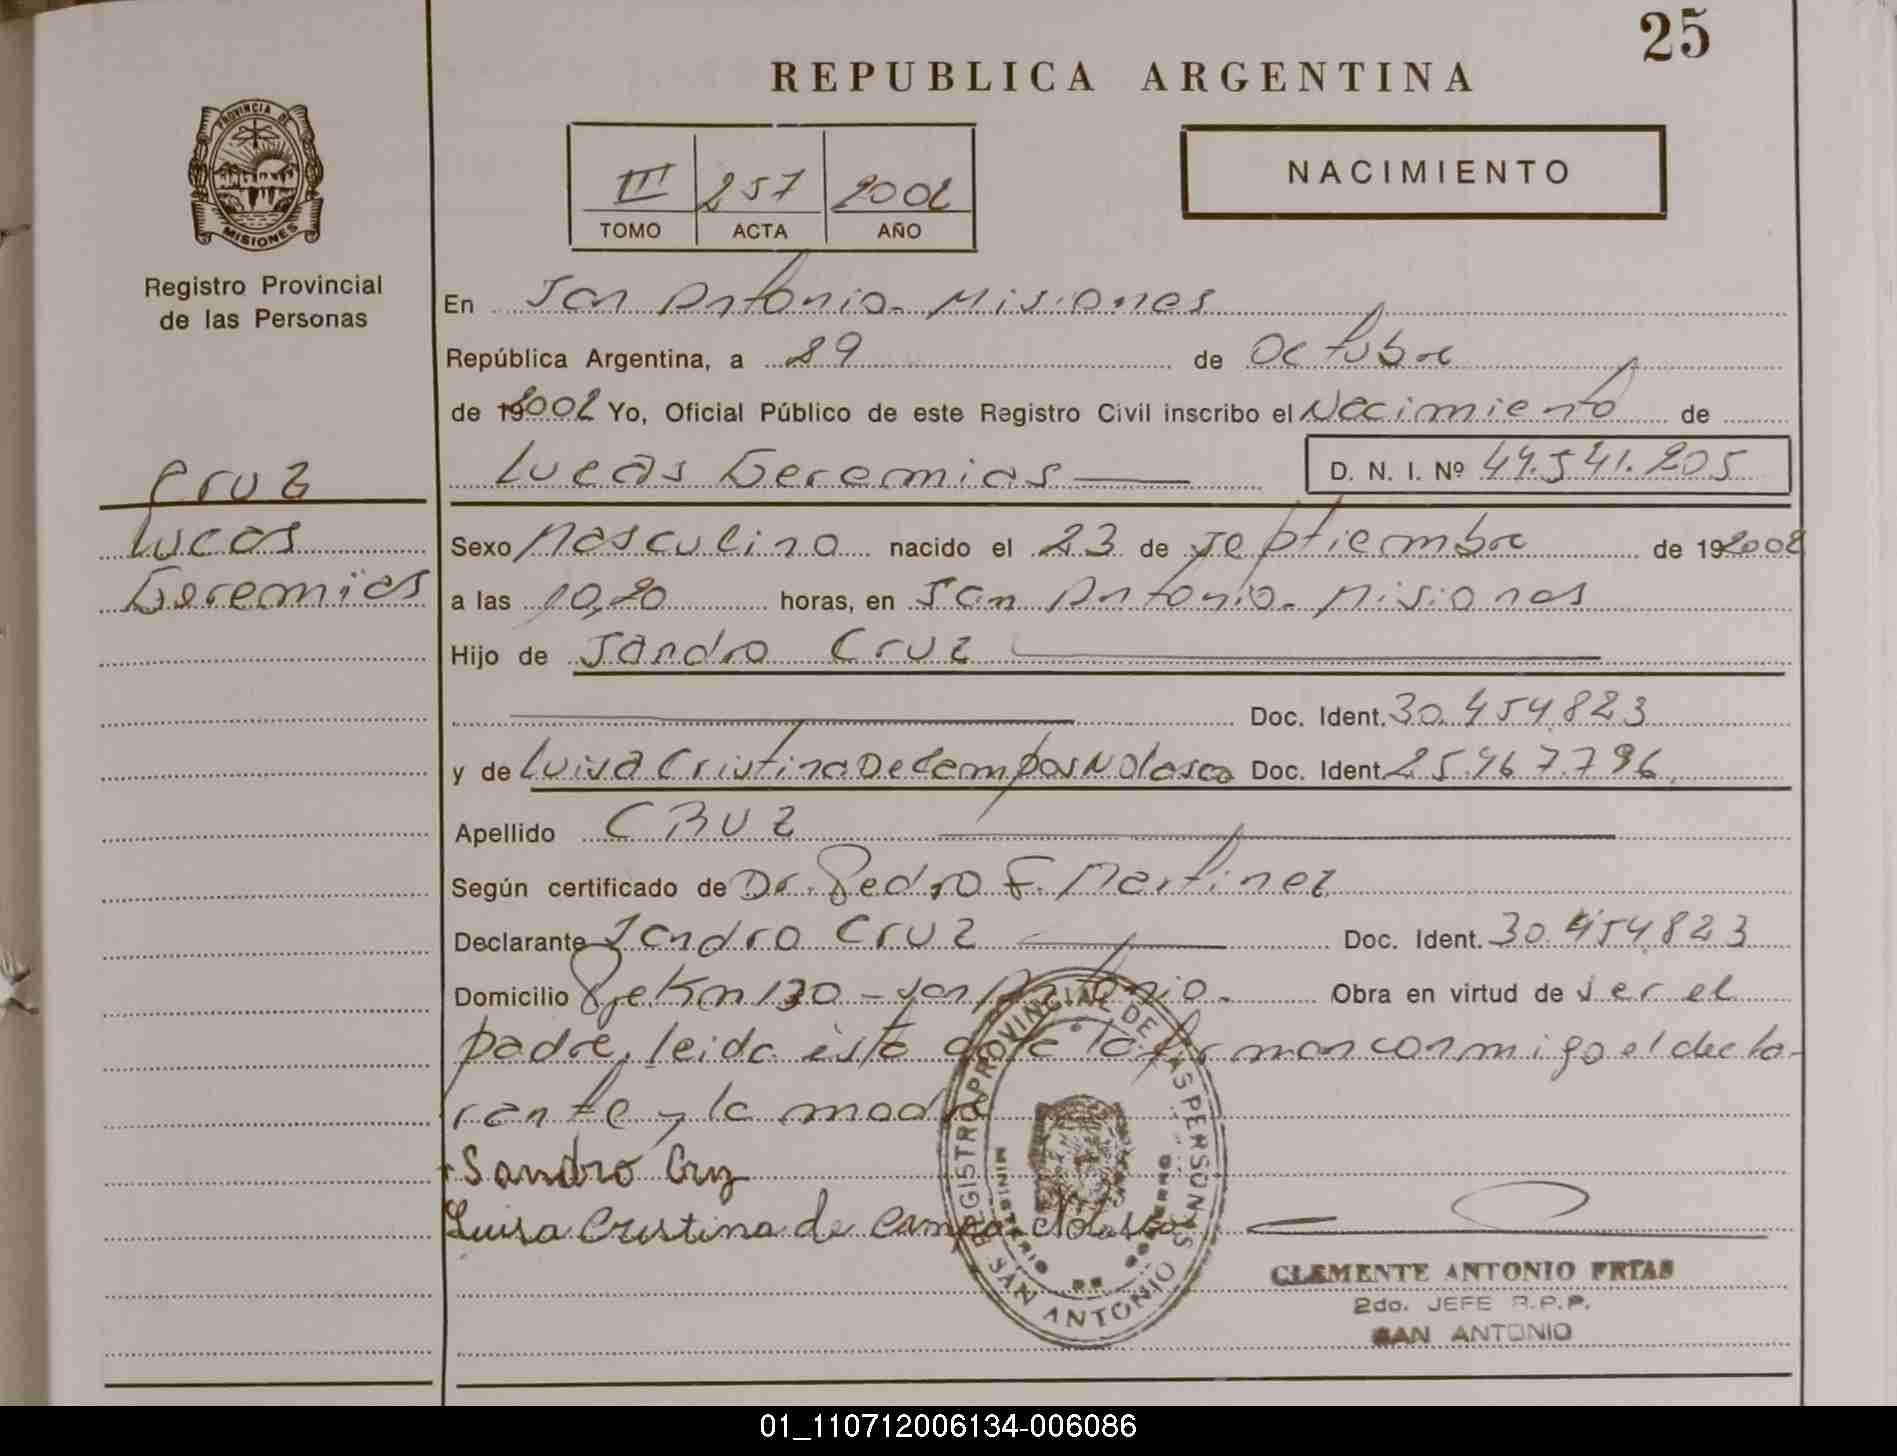 25
REPUBLICA ARGENTINA
PROVINCIA DE
MISIONES
Registro Provincial
de las Personas
III 257 2002
TOMO ACTA AÑO
NACIMIENTO
En San Antonio - Misiones
República Argentina, a 29 de Octubre
de 2002 Yo, Oficial Público de este Registro Civil inscribo el Nacimiento de
Lucas Geremias D. N. I. Nº 44.541.205
Cruz
Lucas
Geremias
Sexo Masculino nacido el 23 de Septiembre de 2002
a las 10,20 horas, en San Antonio - Misiones
Hijo de Sandro Cruz
Doc. Ident. 30.454.823
y de Luisa Cristina De Campos Nolasco Doc. Ident. 25.467.796
Apellido CRUZ
Según certificado de Dr. Pedro F. Martinez
Declarante Sandro Cruz Doc. Ident. 30.454.823
Domicilio Pje Km 130 - San Antonio. Obra en virtud de ser el
padre, leida esta acta la firman conmigo el decla-
rante y la madre
Sandro Cruz
Luisa Cristina de Campo Nolasco
REGISTRO PROVINCIAL DE LAS PERSONAS
MINISTERIO DE GOBIERNO
SAN ANTONIO
CLEMENTE ANTONIO FRIAS
2do. JEFE R.P.P.
SAN ANTONIO
01_110712006134-006086